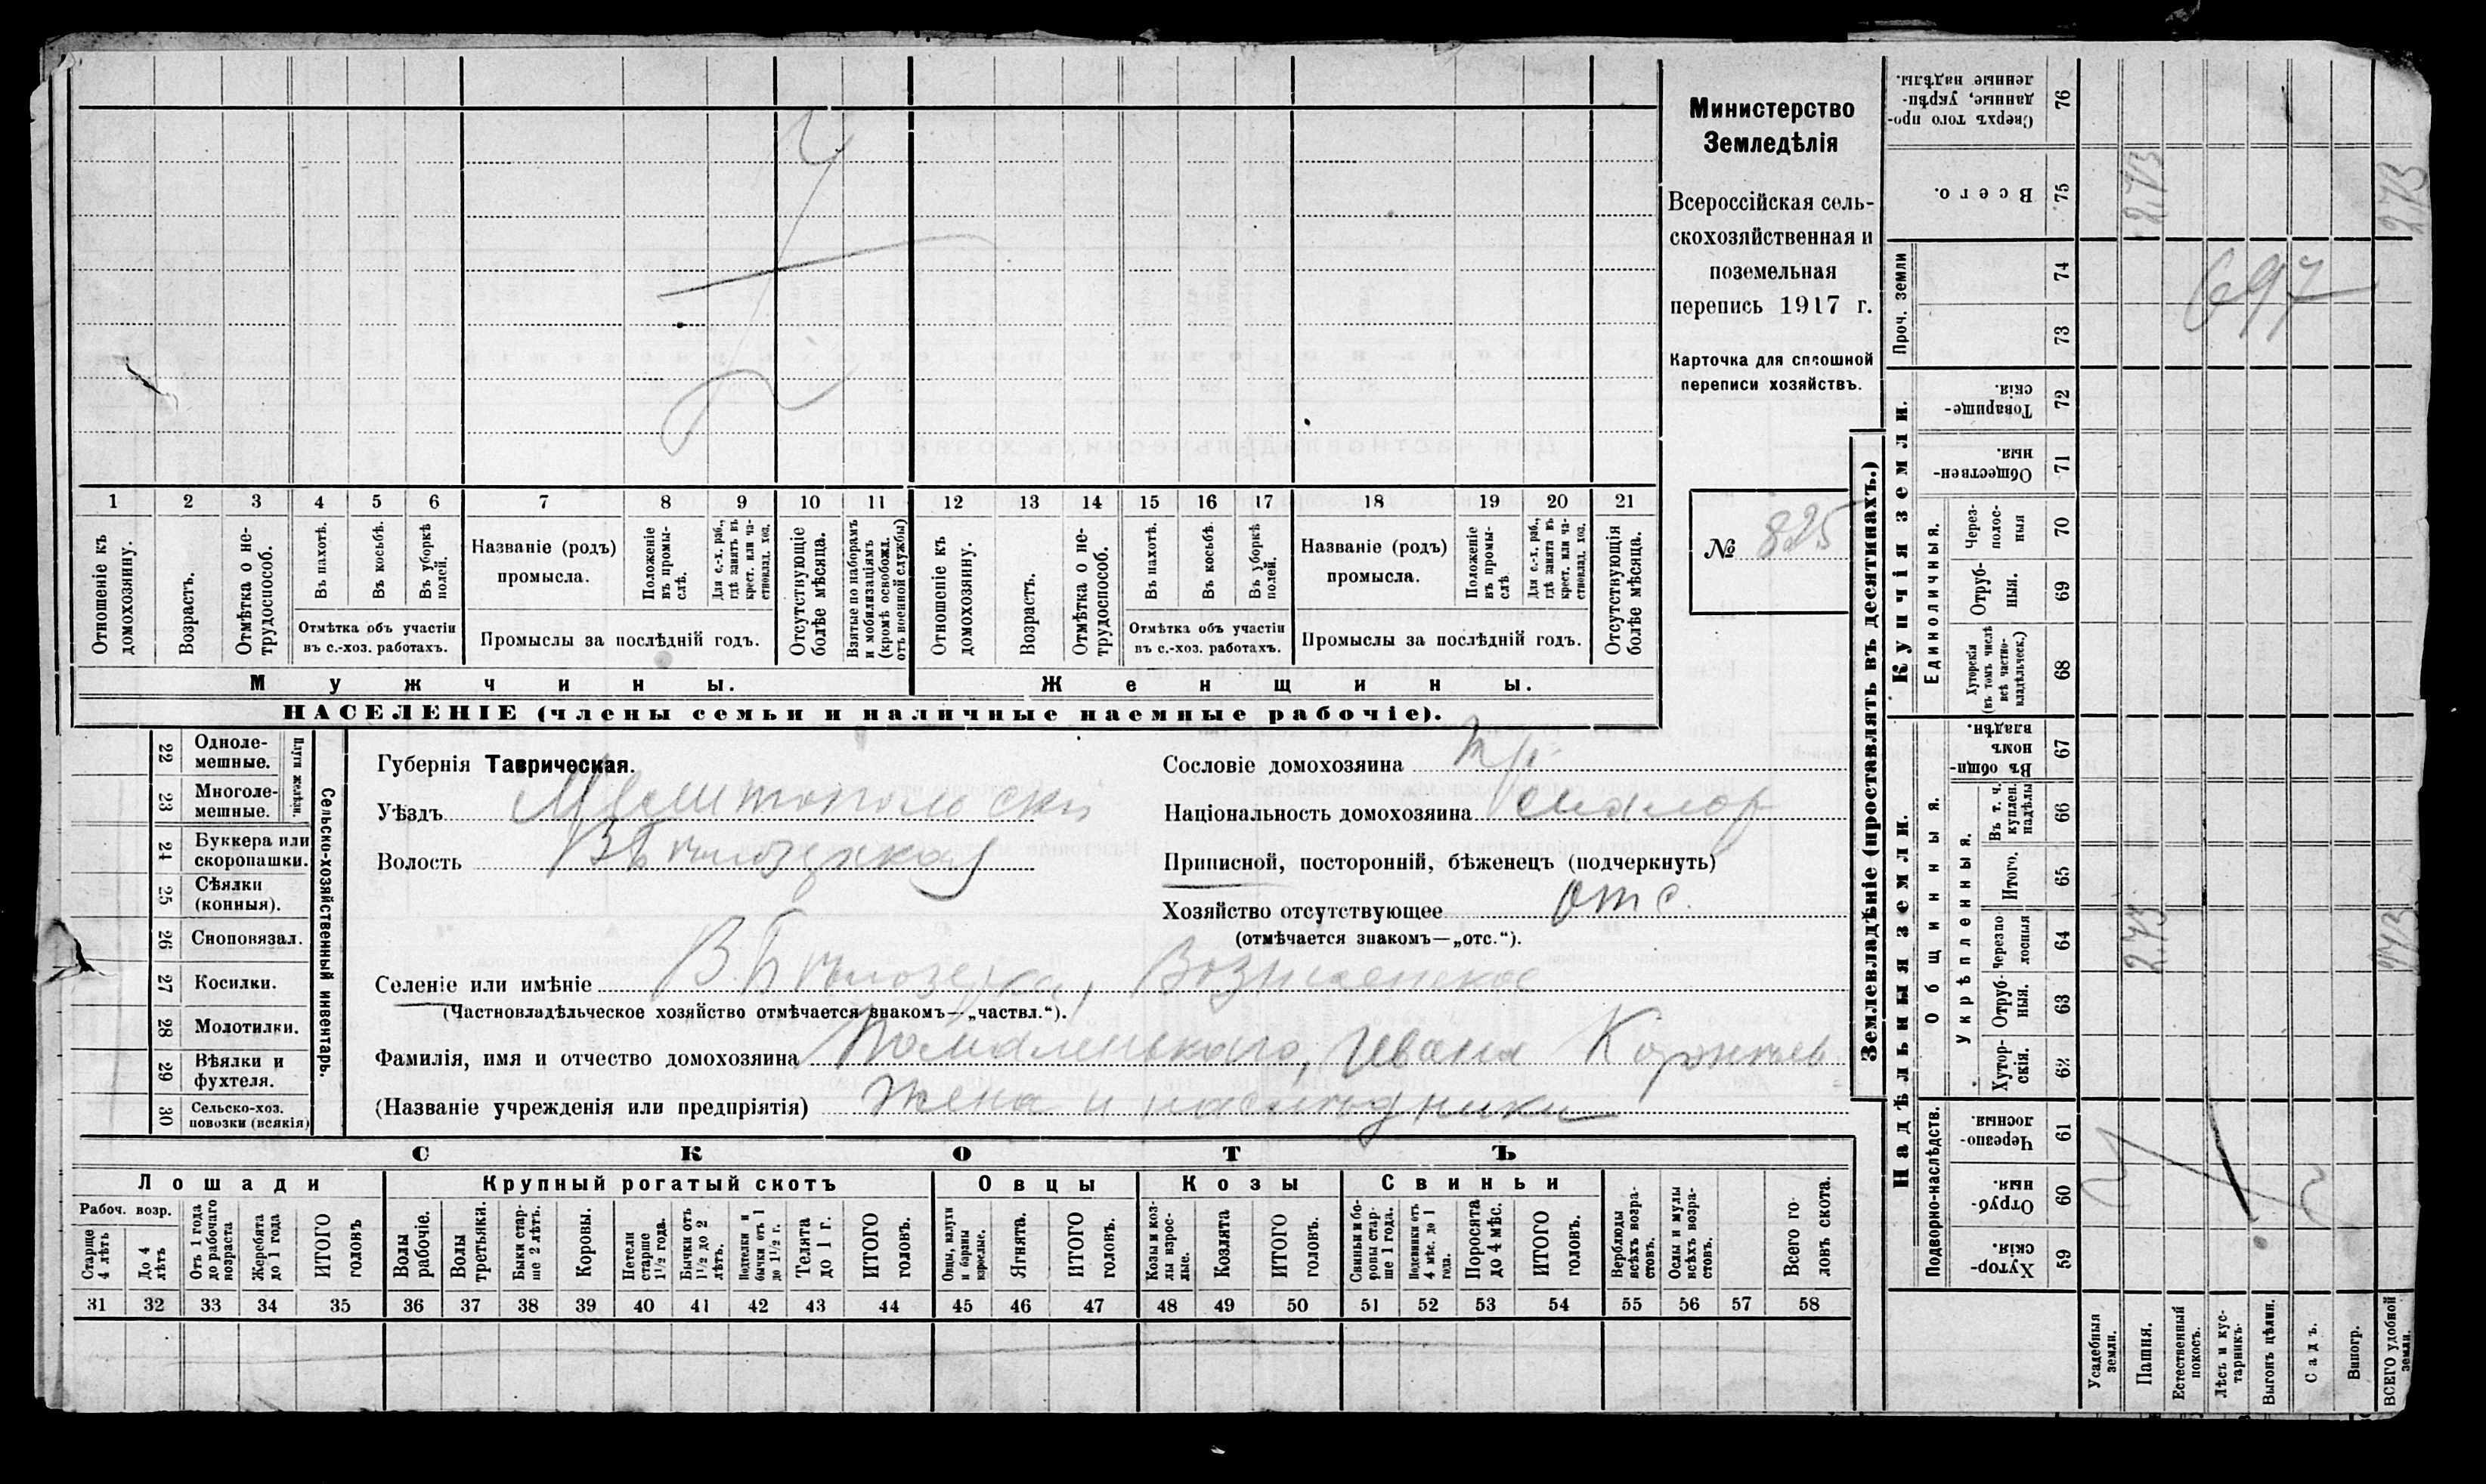 Министерство
Земледѣлія
Всероссійская сель-
скохозяйственная и
поземельная
перепись 1917 г.
Карточка для сплошной
переписи хозяйствъ.
№ 825
1 2 3 4 5 6 7 8 9 10 11 12 13 14 15 16 17 18 19 20 21
Отношеніе къ домохозяину.
Возрастъ.
Отмѣтка о не-трудоспособ.
Въ пахотѣ.
Въ косьбѣ.
Въ уборкѣ полей.
Отмѣтка объ участіи
въ с.-хоз. работахъ.
Названіе (родъ)
промысла.
Положеніе въ промы-слѣ.
Для с.-х. раб., гдѣ занятъ въ крест. или ча-стновлад. хоз.
Промыслы за послѣдній годъ.
Отсутствующіе болѣе мѣсяца.
Взятые по наборамъ и мобилизаціямъ (кромѣ освобожд. отъ военной службы)
Отношеніе къ домохозяину.
Возрастъ.
Отмѣтка о не-трудоспособ.
Въ пахотѣ.
Въ косьбѣ.
Въ уборкѣ полей.
Отмѣтка объ участіи
въ с.-хоз. работахъ.
Названіе (родъ)
промысла.
Положеніе въ промы-слѣ
Для с.-х. раб., гдѣ занята въ крест. или ча-стновлад. хоз.
Промыслы за послѣдній годъ.
Отсутствующія болѣе мѣсяца.
Мужчины.
Женщины.
НАСЕЛЕНІЕ (члены семьи и наличные наемные рабочіе).
Сельско-хозяйственный инвентарь.
Плуги желѣзн.
22 Одноле-мешные.
23 Многоле-мешные.
24 Буккера или скоропашки.
25 Сѣялки (конныя).
26 Сноповязал.
27 Косилки.
28 Молотилки.
29 Вѣялки и фухтеля.
30 Сельско-хоз. повозки (всякія)
Губернія Таврическая.
Уѣздъ Мелитопольскій
Волость В Бѣлозерская
Сословіе домохозяина
Національность домохозяина
Приписной, посторонній, бѣженецъ (подчеркнуть)
Хозяйство отсутствующее отс.
(отмѣчается знакомъ—„отс.“).
Селеніе или имѣніе В. Бѣлозерка, Вознесенское
(Частновладѣльческое хозяйство отмѣчается знакомъ—„частвл.“).
Фамилія, имя и отчество домохозяина Помаленького, Ивана Корнѣев
(Названіе учрежденія или предпріятія) Жена и наслѣдники
СКОТЪ
Лошади
Крупный рогатый скотъ
Овцы
Козы
Свиньи
Рабоч. возр.
Старше 4 лѣтъ
До 4 лѣтъ
Отъ 1 года до рабочаго возраста
Жеребята до 1 года
ИТОГО головъ
Волы рабочіе.
Волы третьяки.
Быки стар-ше 2 лѣтъ.
Коровы.
Нетели старше 1½ года.
Бычки отъ 1½ до 2 лѣтъ.
Подтелки и бычки отъ 1 до 1½ г.
Телята до 1 г.
ИТОГО головъ.
Овцы, валухи и бараны взрослые.
Ягнята.
ИТОГО головъ.
Козы и коз-лы взрос-лые.
Козлята
ИТОГО головъ.
Свиньи и бо-ровы стар-ше 1 года.
Подсвинки отъ 4 мѣс. до 1 года.
Поросята до 4 мѣс.
ИТОГО головъ.
Верблюды всѣхъ возра-стовъ.
Ослы и мулы всѣхъ возра-стовъ.
Всего го-ловъ скота.
31 32 33 34 35 36 37 38 39 40 41 42 43 44 45 46 47 48 49 50 51 52 53 54 55 56 57 58
Землевладѣніе (проставлять въ десятинахъ.)
Надѣльныя земли.
Купчія земли.
Проч. земли
Подворно-наслѣдств.
Общинныя.
Укрѣпленныя.
Единоличныя.
76 Сверхъ того про-данные, укрѣп-ленные надѣлы.
75 Всего. 2.73 2.73
74 697
73
72 Товарище-скія.
71 Обществен-ныя.
70 Через-полос-ныя
69 Отруб-ныя.
68 Хуторскія (въ томъ числѣ всѣ частно-владѣльческ.)
67 Въ общин-номъ владѣн.
66 Въ т. ч. куплен. надѣлы
65 Итого.
64 Черезпо-лосныя 2.73 2.73
63 Отруб-ныя.
62 Хутор-скія.
61 Черезпо-лосныя.
60 Отруб-ныя.
59 Хутор-скія.
Усадебныя земли.
Пашня.
Естественный покосъ.
Лѣсъ и кус-тарникъ.
Выгонъ цѣлин.
Садъ.
Виногр.
ВСЕГО удобной земли.